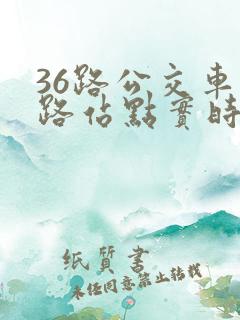 36路公交車
路站點實時
纸质书
未经同意禁止转载